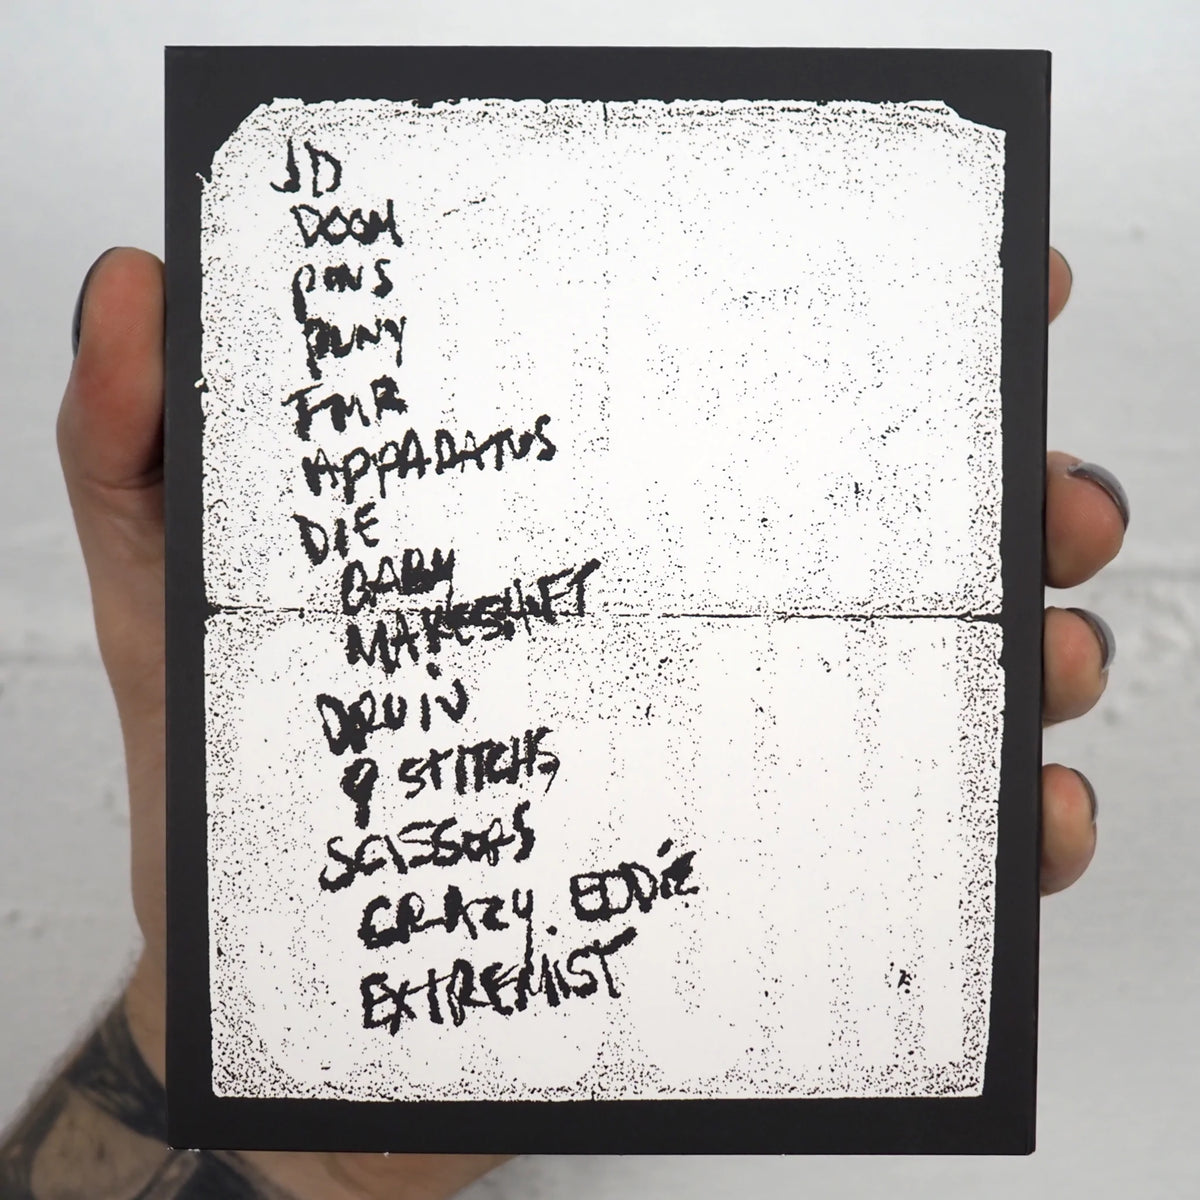 JD
DOOM
PINS
PUNY
FMR
APPARATUS
DIE
BABY
MAKESHIFT
DRUID
9 STITCHS
SCISSORS
CRAZY. EDDIE
EXTREMIST